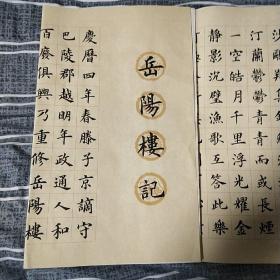 岳陽樓記
慶曆四年春滕子京謫守
巴陵郡越明年政通人和
百廢俱興乃重修岳陽樓
汀蘭鬱鬱青青而或長煙
一空皓月千里浮光耀金
靜影沉璧漁歌互答此樂